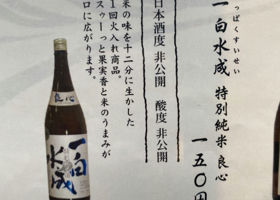 っぱくすいせい
一白水成 特別純米 良心 一五〇円
日本酒度 非公開 酸度 非公開
米の味を十二分に生かした
1回火入れ商品。
スゥーっと果実香と米のうまみが
口に広がります。
良心
一白水成